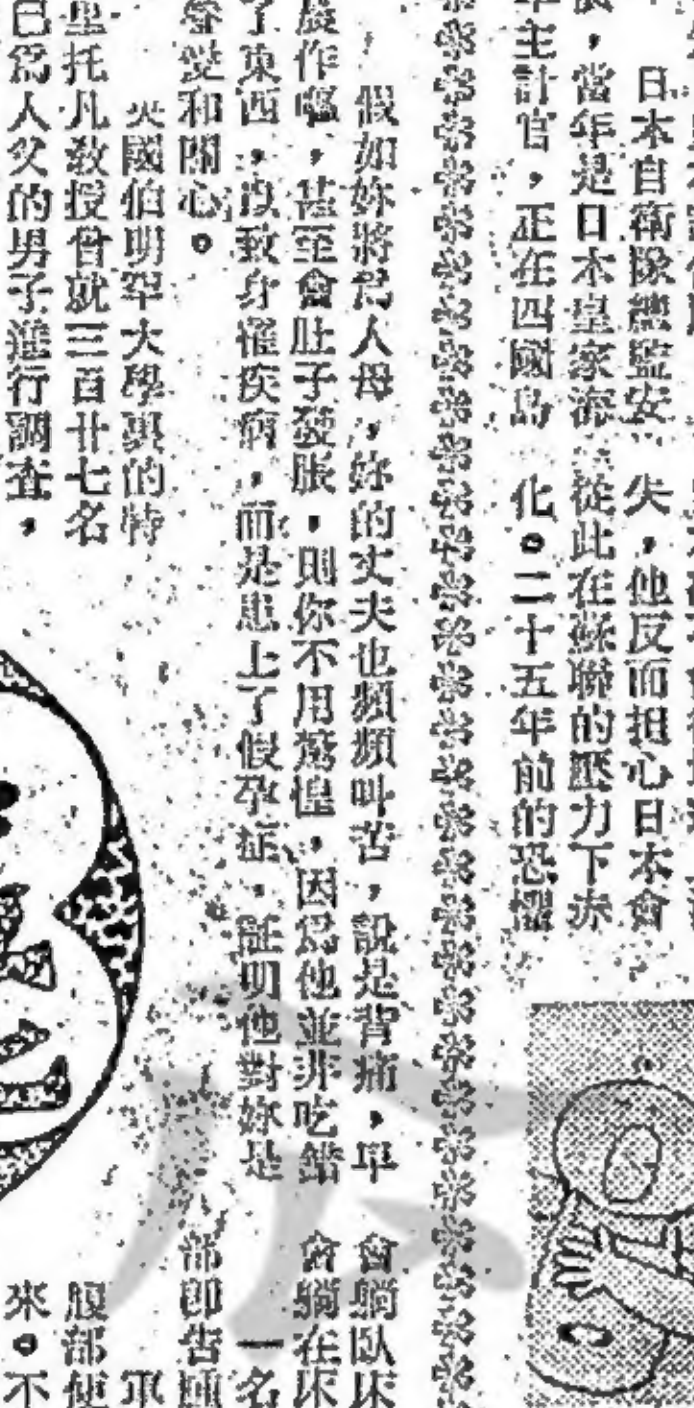 日本自衛隊總監安
當年是日本皇家海
年主計官，正在四國島
失，他反而担心日本會
從此在蘇聯的壓力下赤
化。二十五年前的恐懼
假如妳將爲人母，妳的丈夫也頻頻叫苦，說是背痛，早
晨作嘔，甚至會肚子發脹，則你不用驚惶，因爲他並非吃錯
了東西，以致身罹疾病，而是患上了假孕症，証明他對妳是
愛和關心。
英國伯明罕大學裏的特
里托凡敎授曾就三百廿七名
已爲人父的男子進行調查，
會躺臥床
會躺在床
一名
部卽告
腹部便
來。不